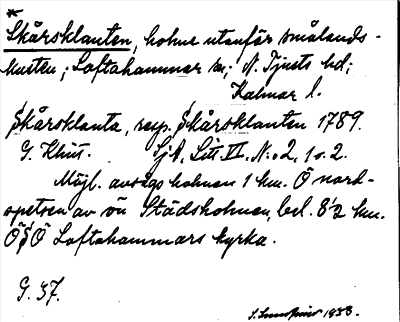 *
Skårsklanten, holme utanför smålands-
kusten; Loftahammar sn; N. Tjusts hd;
Kalmar l.
Skårsklanta, resp. Skårsklanten 1789.
G. Klint. SjA, Litt. II. N:o 2, 1 o. 2.
Möjl. avsågs holmen 1 km. Ö nord-
spetsen av ön Städsholmen, bel. 8 1/2 km.
ÖSÖ Loftahammars kyrka.
G. 37.
1933.